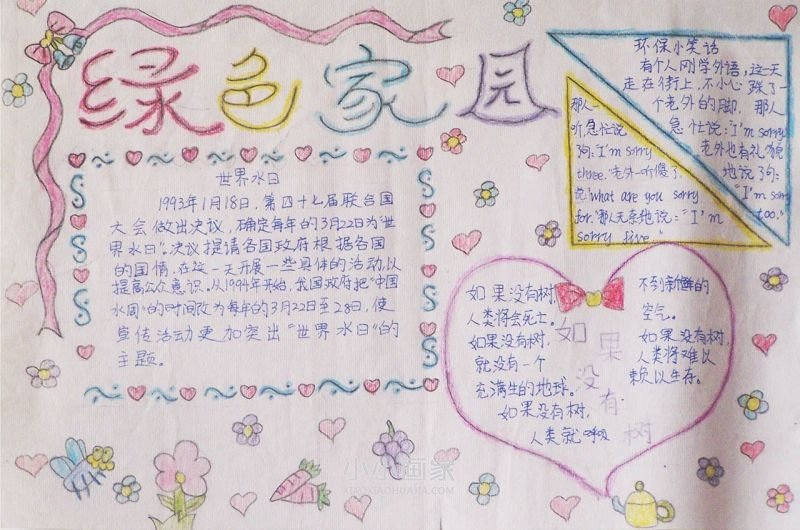 绿色家园
世界水日
1993年1月18日,第四十七届联合国
大会做出决议,确定每年的3月22日为"世
界水日"。决议提请各国政府根据各国
的国情,在这一天开展一些具体的活动,以
提高公众意识。从1994年开始,我国政府把"中国
水周"的时间改为每年的3月22日至28日,使
宣传活动更加突出"世界水日"的
主题。
环保小笑话
有个人刚学外语,这一天
走在街上,不小心踩了一
个老外的脚,那人
急忙说:"I'm sorry
老外也有礼貌
地说了句:
"I'm sorry
too."
那人一
听急忙说
句:I'm sorry
three.老外一听傻了.
说:what are you sorry
for.那人无奈地说:"I'm
sorry five."
如果没有树,
人类将会死亡。
如果没有树,
就没有一个
充满生的地球。
如果没有树,
人类就呼吸
不到新鲜的
空气。
如果没有树,
人类将难以
赖以生存。
如果没有树
小小画家
XIAOXIAOHUAJIA.COM